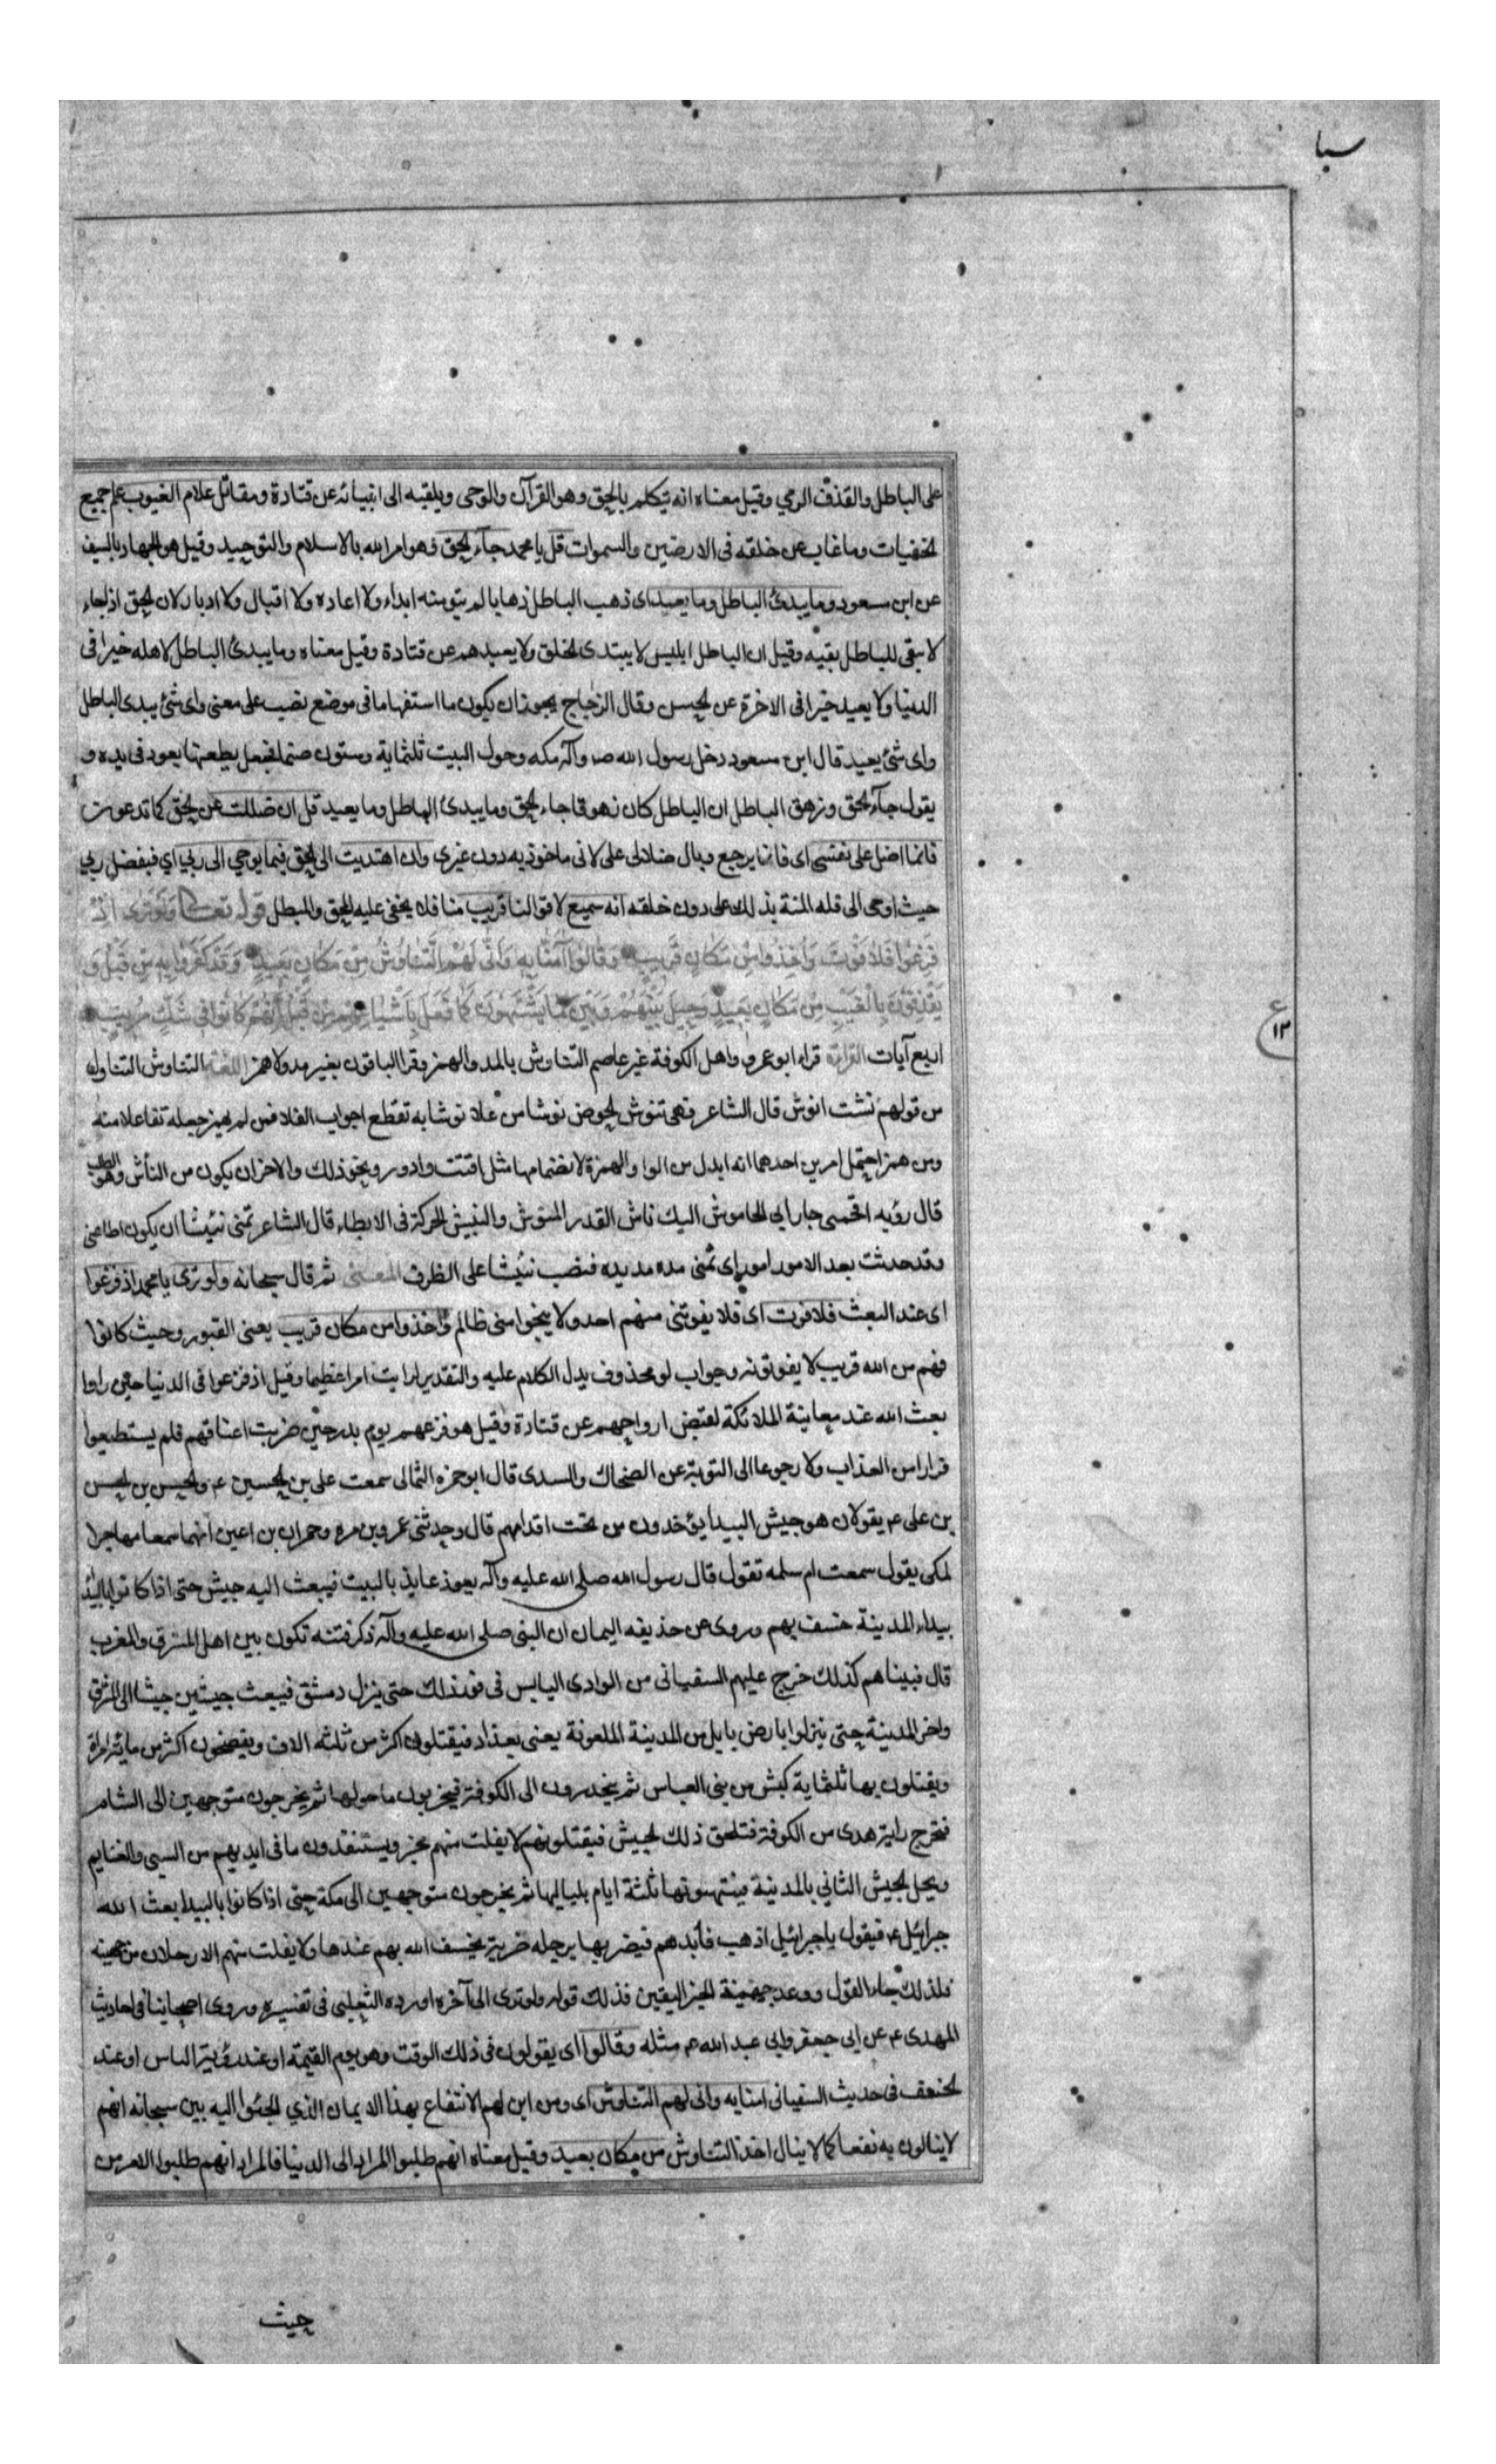 سبا
على الباطل والقذف الرمي وقيل معناه انه يتكلم بالحق وهو القرآن والوحى ويلقيه الى انبيائه عن قتادة ومقاتل علام الغيوب علم جميع
الخفيات وما غاب عن خلقه فى الارضين والسموات قل يا محمد جآء الحق وهو امر الله بالاسلام والتوحيد وقيل هو الجهاد بالسيف
عن ابن مسعود وما يبدئ الباطل وما يعيد اى ذهب الباطل ذهابا لم يبق منه ابداء ولا اعاده ولا اقبال ولا ادبار لان الحق اذا جاء
لا يبقى للباطل بقيه وقيل ان الباطل ابليس لا يبتدى الخلق ولا يعيدهم عن قتادة وقيل معناه وما يبدئ الباطل لاهله خيرا فى
الدنيا ولا يعيد خيرا فى الاخرة عن الحسن وقال الزجاج يجوز ان يكون ما استفهاما فى موضع نصب على معنى واى شئ يبدى الباطل
واى شئ يعيد قال ابن مسعود دخل رسول الله صـ وآله مكه وحول البيت ثلثماية وستون صنما فجعل يطعنها بعود فى يده و
يقول جآء الحق وزهق الباطل ان الباطل كان زهوقا جاء الحق وما يبدئ الباطل وما يعيد قل ان ضللت عن الحق كما تدعون
فانما اضل على نفسى اى فانما يرجع وبال ضلالى على لانى ماخوذ به دون غيرى وان اهتديت الى الحق فبما يوحي الى ربي اي فبفضل ربي
حيث اوحى الى فله المنة بذلك على دون خلقه انه سميع لاقوالنا قريب منا فلا يخفى عليه المحق والمبطل قوله تعالى وَلَوْ تَرَى اذْ
فَزِعُوا فَلَا فَوْتَ وَأُخِذُوا مِنْ مَكَانٍ قَرِيبٍ وَقَالُوا آمَنَّا بِهِ وَأَنَّى لَهُمُ التَّنَاوُشُ مِنْ مَكَانٍ بَعِيدٍ وَقَدْ كَفَرُوا بِهِ مِنْ قَبْلُ وَ
يَقْذِفُونَ بِالْغَيْبِ مِنْ مَكَانٍ بَعِيدٍ وَحِيلَ بَيْنَهُمْ وَبَيْنَ مَا يَشْتَهُونَ كَمَا فُعِلَ بِأَشْيَاعِهِمْ مِنْ قَبْلُ إِنَّهُمْ كَانُوا فِى شَكٍّ مُرِيبٍ
ع ١٢
اربع آيات القراءة قراء ابو عمرو واهل الكوفة غير عاصم التناوش بالمد والهمز وقرا الباقون بغير مد ولا همز اللغة التناوش التناول
من قولهم نشت انوش قال الشاعر فهى تنوش الحوض نوشا من علا نوشا به تقطع اجواب الفلا فمن لم يهمز جعله تفاعلا منه
ومن همز احتمل امرين احدهما انه ابدل من الواو الهمزة لانضمامها مثل اقتت وادور ونحو ذلك والاخر ان يكون من النأش وهو الطلب
قال رؤبه اقحمنى جار ابى الخاموش اليك ناش القدر المنوش والنئيش الحركة فى الابطاء قال الشاعر تمنى نئيشا ان يكون اطاعنى
وقد حدثت بعد الامور امور اى تمنى مده مديده فنصب نئيشا على الظرف المعنى ثم قال سبحانه ولو ترى يا محمد اذ فزعوا
اى عند البعث فلا فوت اى فلا يفوتنى منهم احد ولا ينجوا منى ظالم واخذوا من مكان قريب يعنى القبور وحيث كانوا
فهم من الله قريب لا يفوتونه وجواب لو محذوف يدل الكلام عليه والتقدير لرايت امرا عظيما وقيل اذ فزعوا فى الدنيا حين راوا
بعث الله عند معاينة الملائكة لقبض ارواحهم عن قتادة وقيل هو فزعهم يوم بدر حين ضربت اعناقهم فلم يستطيعوا
فرارا من العذاب ولا رجوعا الى التوبة عن الضحاك والسدى قال ابو حمزه الثمالى سمعت على بن الحسين ع والحسن بن الحسن
بن على ع يقولان هو جيش البيدا يؤخذون من تحت اقدامهم قال وحدثنى عمرو بن مره وحمران بن اعين انهما سمعا مهاجرا
لمكى يقول سمعت ام سلمه تقول قال رسول الله صلى الله عليه وآله يعوذ عايذ بالبيت فيبعث اليه جيش حتى اذا كانوا بالبيدا
بيداء المدينة خسف بهم وروى عن حذيفه اليمان ان النبى صلى الله عليه وآله ذكر فتنه تكون بين اهل المشرق والمغرب
قال فبيناهم كذلك خرج عليهم السفيانى من الوادى اليابس فى فور ذلك حتى ينزل دمشق فيبعث جيشين جيشا الى المشرق
واخر المدينة حتى ينزلوا بارض بابل من المدينة الملعونة يعنى بغداد فيقتلون اكثر من ثلثه الاف ويفضحون اكثر من مائة امراة
ويقتلون بها ثلثماية كبش من بنى العباس ثم ينحدرون الى الكوفة فيخربون ما حولها ثم يخرجون متوجهين الى الشام
فتخرج راية هدى من الكوفة فتلحق ذلك الجيش فيقتلونهم لا يفلت منهم مخبر ويستنقذون ما فى ايديهم من السبى والغنايم
ويحل الجيش الثاني بالمدينة فينتهبونها ثلثة ايام بلياليها ثم يخرجون متوجهين الى مكة حتى اذا كانوا بالبيدا بعث الله
جبرائيل ع فيقول يا جبرائيل اذهب فأبدهم فيضربها برجله ضربة يخسف الله بهم عندها ولا يفلت منهم الا رجلان من جهينه
فلذلك جاء القول وعند جهينة الخبر اليقين فذلك قوله ولو ترى الى آخره اورده الثعلبى فى تفسيره وروى اصحابنا فى احاديث
المهدى ع عن ابى جعفر وابى عبد الله ع مثله وقالوا اى يقولون فى ذلك الوقت وهو يوم القيمة او عند رؤية الباس او عند
الخسف فى حديث السفيانى امنا به وانى لهم التناوش اى ومن اين لهم الانتفاع بهذا الايمان الذي الجئوا اليه بين سبحانه انهم
لا ينالون به نفعا كما لا ينال احد التناوش من مكان بعيد وقيل معناه انهم طلبوا المراد الى الدنيا فالمراد انهم طلبوا الامر من
حيث